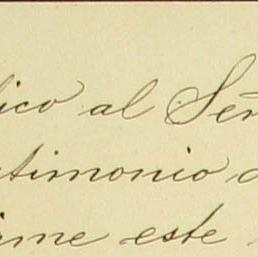 lico al Señ
stimonio d
irme este